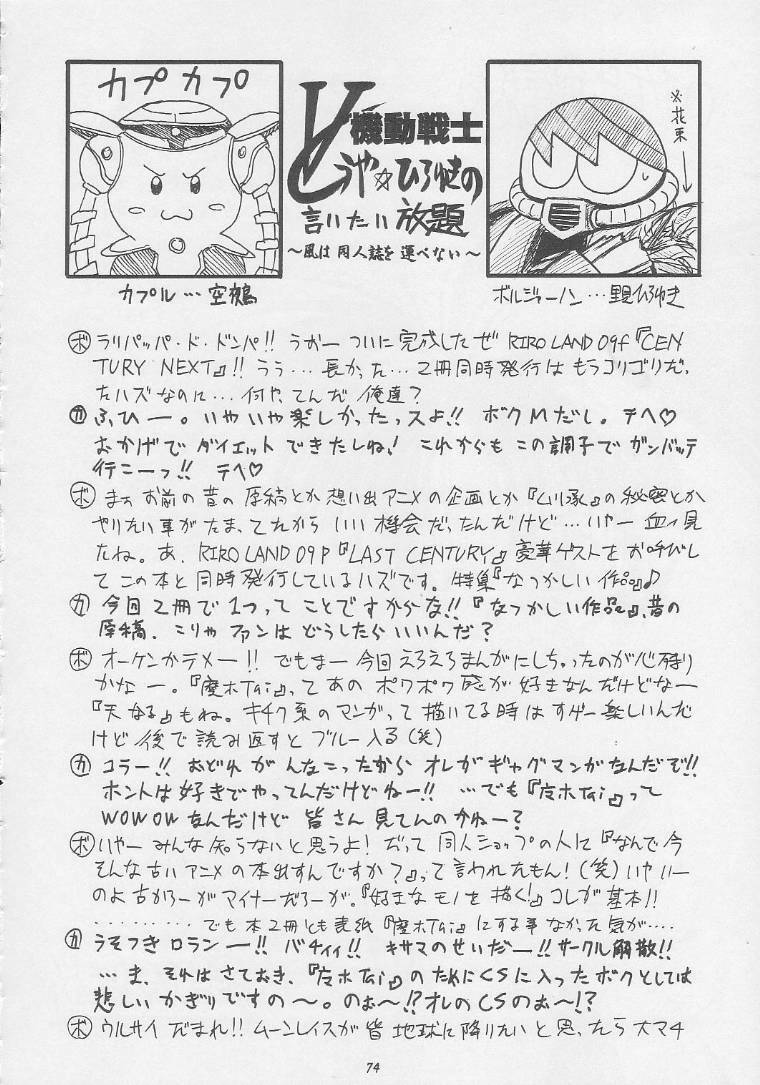 カプカプ
機動戦士
とうや☆ひろゆきの
言いたい放題
～風は同人誌を運べない～
※花束
カプル…空鵺
ボルジャーノン…里見ひろゆき
ボ ラリパッパ・ド・ドンパ!! うおー ついに完成したゼ RIRO LAND 09f『CEN
TURY NEXT』!! うう…長かった…2冊同時発行はもうコリゴリだっ
たハズなのに…何やってんだ俺達？
カ ふひー。いやいや楽しかったっスよ!! ボクMだし。テヘ♡
おかげでダイエットできたしね! これからもこの調子でガンバッテ
行こーっ!! テヘ♡
ボ まぁお前の昔の原稿とか想い出アニメの企画とか『
』の秘密とか
やりたい事がたまってたからいい機会だったんだけど…いやー血ィ見
たね。あ、RIRO LAND 09P『LAST CENTURY』豪華ゲストをお呼びし
てこの本と同時発行しているハズです。特集『なつかしい作品』♪
カ 今回2冊で1つってことですからな!!『なつかしい作品』、昔の
原稿、こりゃファンはどうしたらいいんだ？
ボ オーケンかテメー!! でもまー今回えろえろまんがにしちゃったのが心残り
かなー。『廃ホTai』ってあのポワポワ感が好きなんだけどなー
『天なる』もね。キチク系のマンガって描いてる時はすげー楽しいんだ
けど後で読み返すとブルー入る(笑)
カ コラー!! おどれがんなこったからオレがギャグマンガなんだぞ!!
ホントは好きでやってんだけどねー!! …でも『廃ホTai』って
WOWOWなんだけど皆さん見てんのかねー？
ボ いやーみんな知らないと思うよ！だって同人ショップの人に『なんで今
そんな古いアニメの本出すんですか？』って言われたもん！(笑)いやいー
のよ古かろーがマイナーだろーが。『好きなモノを描く!』コレが基本!!
………でも本2冊とも表紙『廃ホTai』にする事なかった気が….
カ うそつきロランー!! バチィィ!! キサマのせいだー!! サークル解散!!
…ま、それはさておき、『廃ホTai』のためにCSに入ったボクとしては
悲しいかぎりですの～。のぉ～!? オレのCSのぉ～!?
ボ ウルサイだまれ!! ムーンレイスが皆地球に降りたいと思ったら大マチ
74